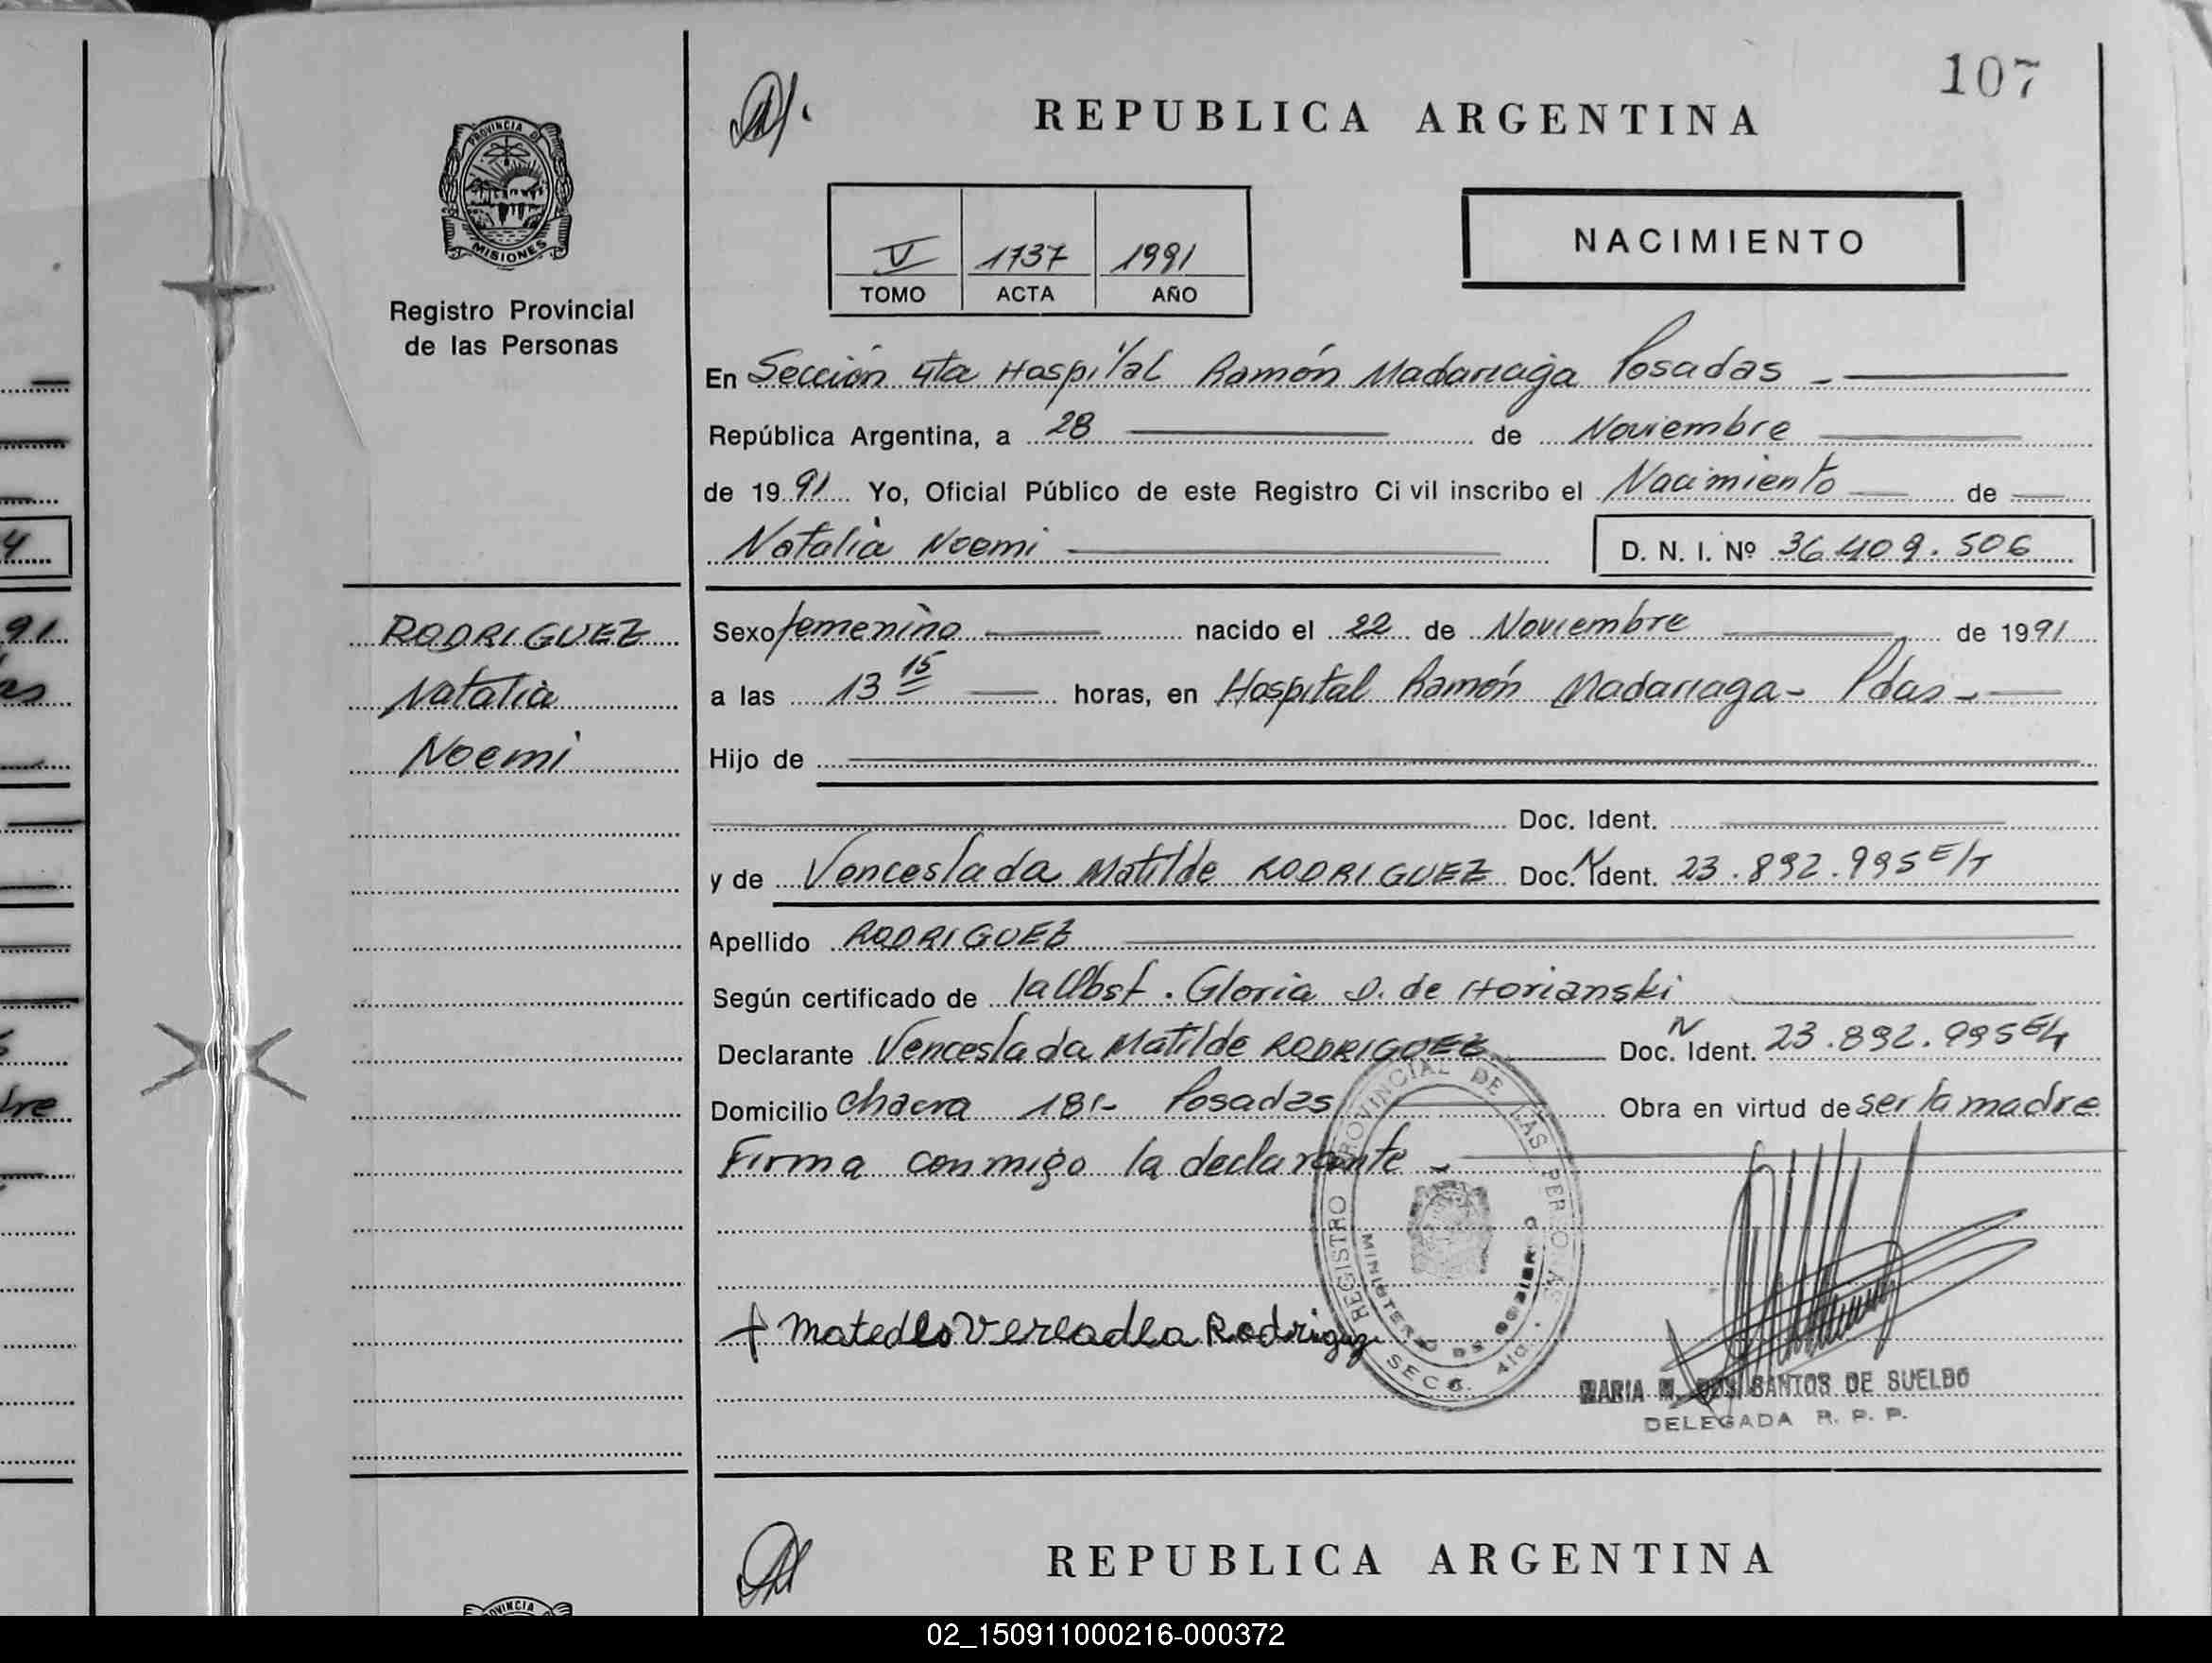 107
REPUBLICA ARGENTINA
PROVINCIA DE
MISIONES
Registro Provincial
de las Personas
V 1737 1991
TOMO ACTA AÑO
NACIMIENTO
En Sección 4ta Hospital Ramón Madariaga Posadas
República Argentina, a 28 de Noviembre
de 1991 Yo, Oficial Público de este Registro Civil inscribo el Nacimiento de
Natalia Noemi D. N. I. Nº 36.409.506
RODRIGUEZ
Natalia
Noemi
Sexo femenino nacido el 22 de Noviembre de 1991
a las 13 15 horas, en Hospital Ramón Madariaga - Pdas -
Hijo de
Doc. Ident.
y de Venceslada Matilde RODRIGUEZ Doc. N Ident. 23.892.995 E/T
Apellido RODRIGUEZ
Según certificado de la Obst. Gloria D. de Horianski
Declarante Venceslada Matilde RODRIGUEZ Doc. N Ident. 23.892.995
Domicilio Chacra 181- Posadas Obra en virtud de ser la madre
Firma conmigo la declarante
REGISTRO PROVINCIAL DE LAS PERSONAS
MINISTERIO DE GOBIERNO
SECC. 4ta.
Rodriguz
MARIA M. DOS SANTOS DE SUELDO
DELEGADA R. P. P.
REPUBLICA ARGENTINA
02_150911000216-000372